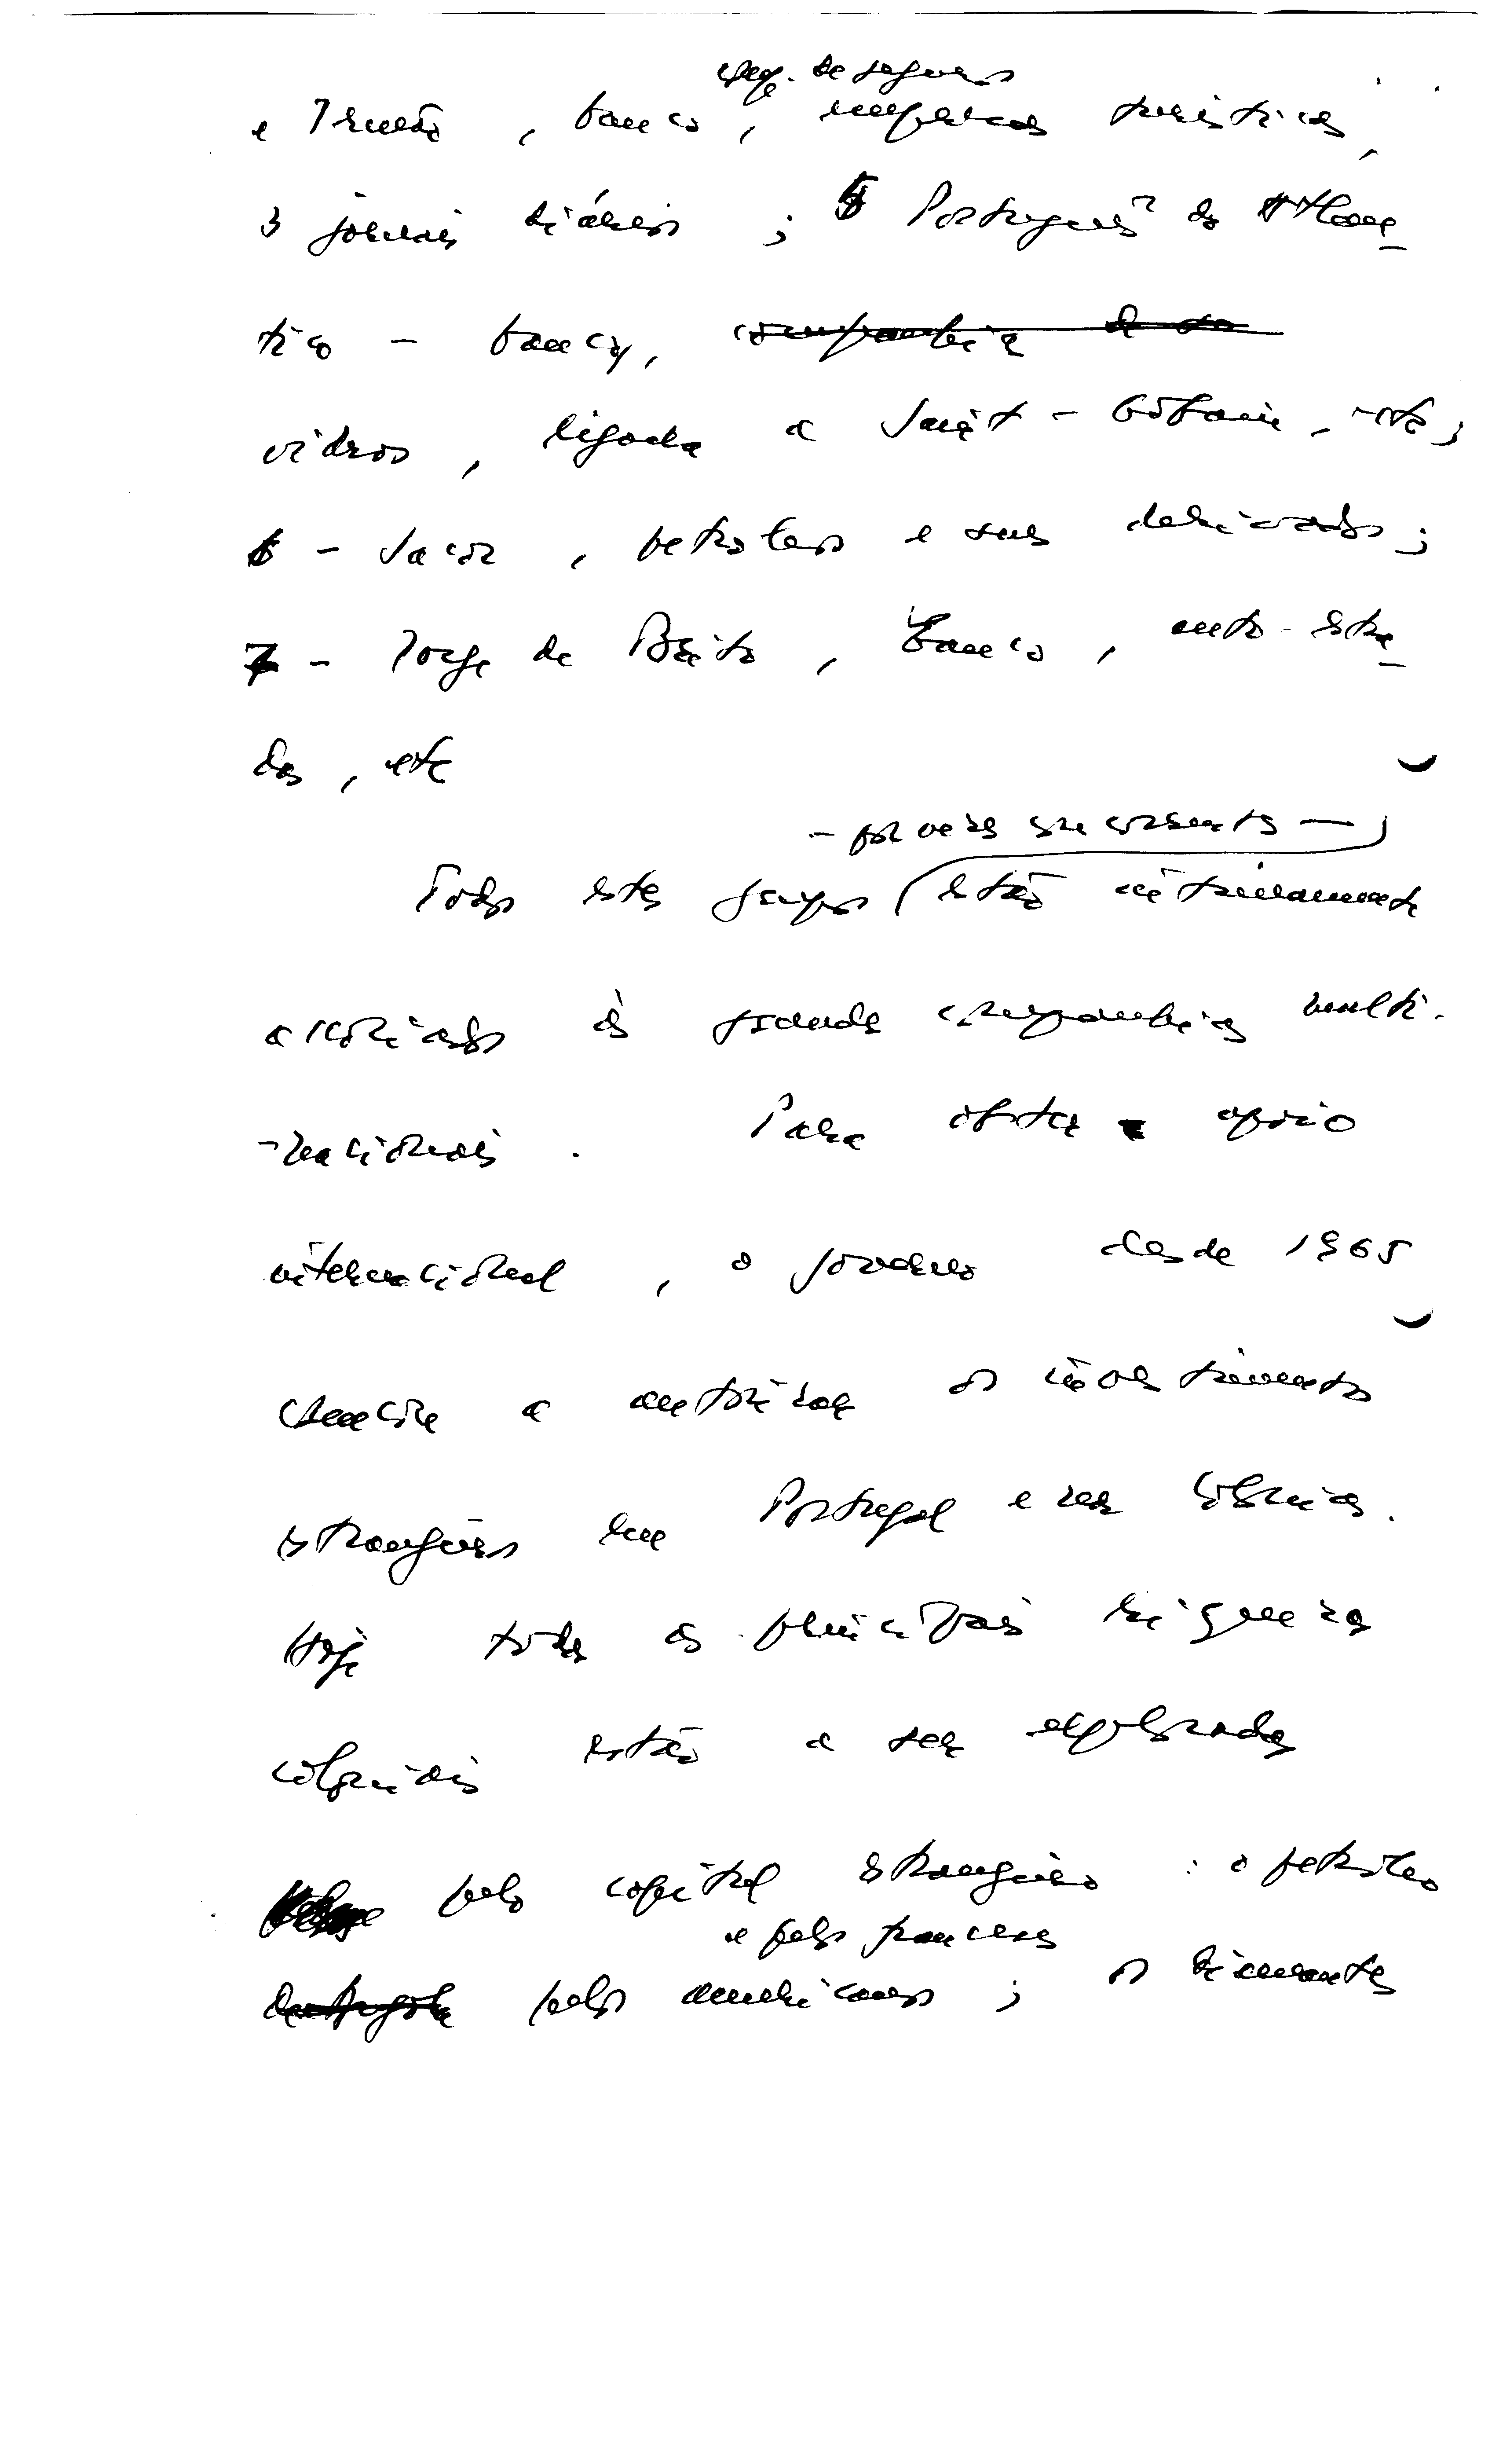 comp. de seguros
e Irmão, banco, empresas turísticas,
3 jornais diários; 5 Português do Atlân_
tico - banco, companhia de
vidros, ligada a Saint-Gobain, etc;
6 - Sacor, petróleos e seus derivados;
7 - Jorge de Brito, banco, auto-estra_
das, etc
- por vezes
Todos estes grupos estão intimamente
associados às grandes companhias multi-
-nacionais. Para obter apoio
internacional, o governo desde 1965
começou a autorizar os investimentos
estrangeiros em Portugal e nas colónias.
Hoje todas as principais riquezas
coloniais estão a ser exploradas
pelo capital estrangeiro: o petróleo
e pelos franceses
de Angola pelos americanos; os diamantes